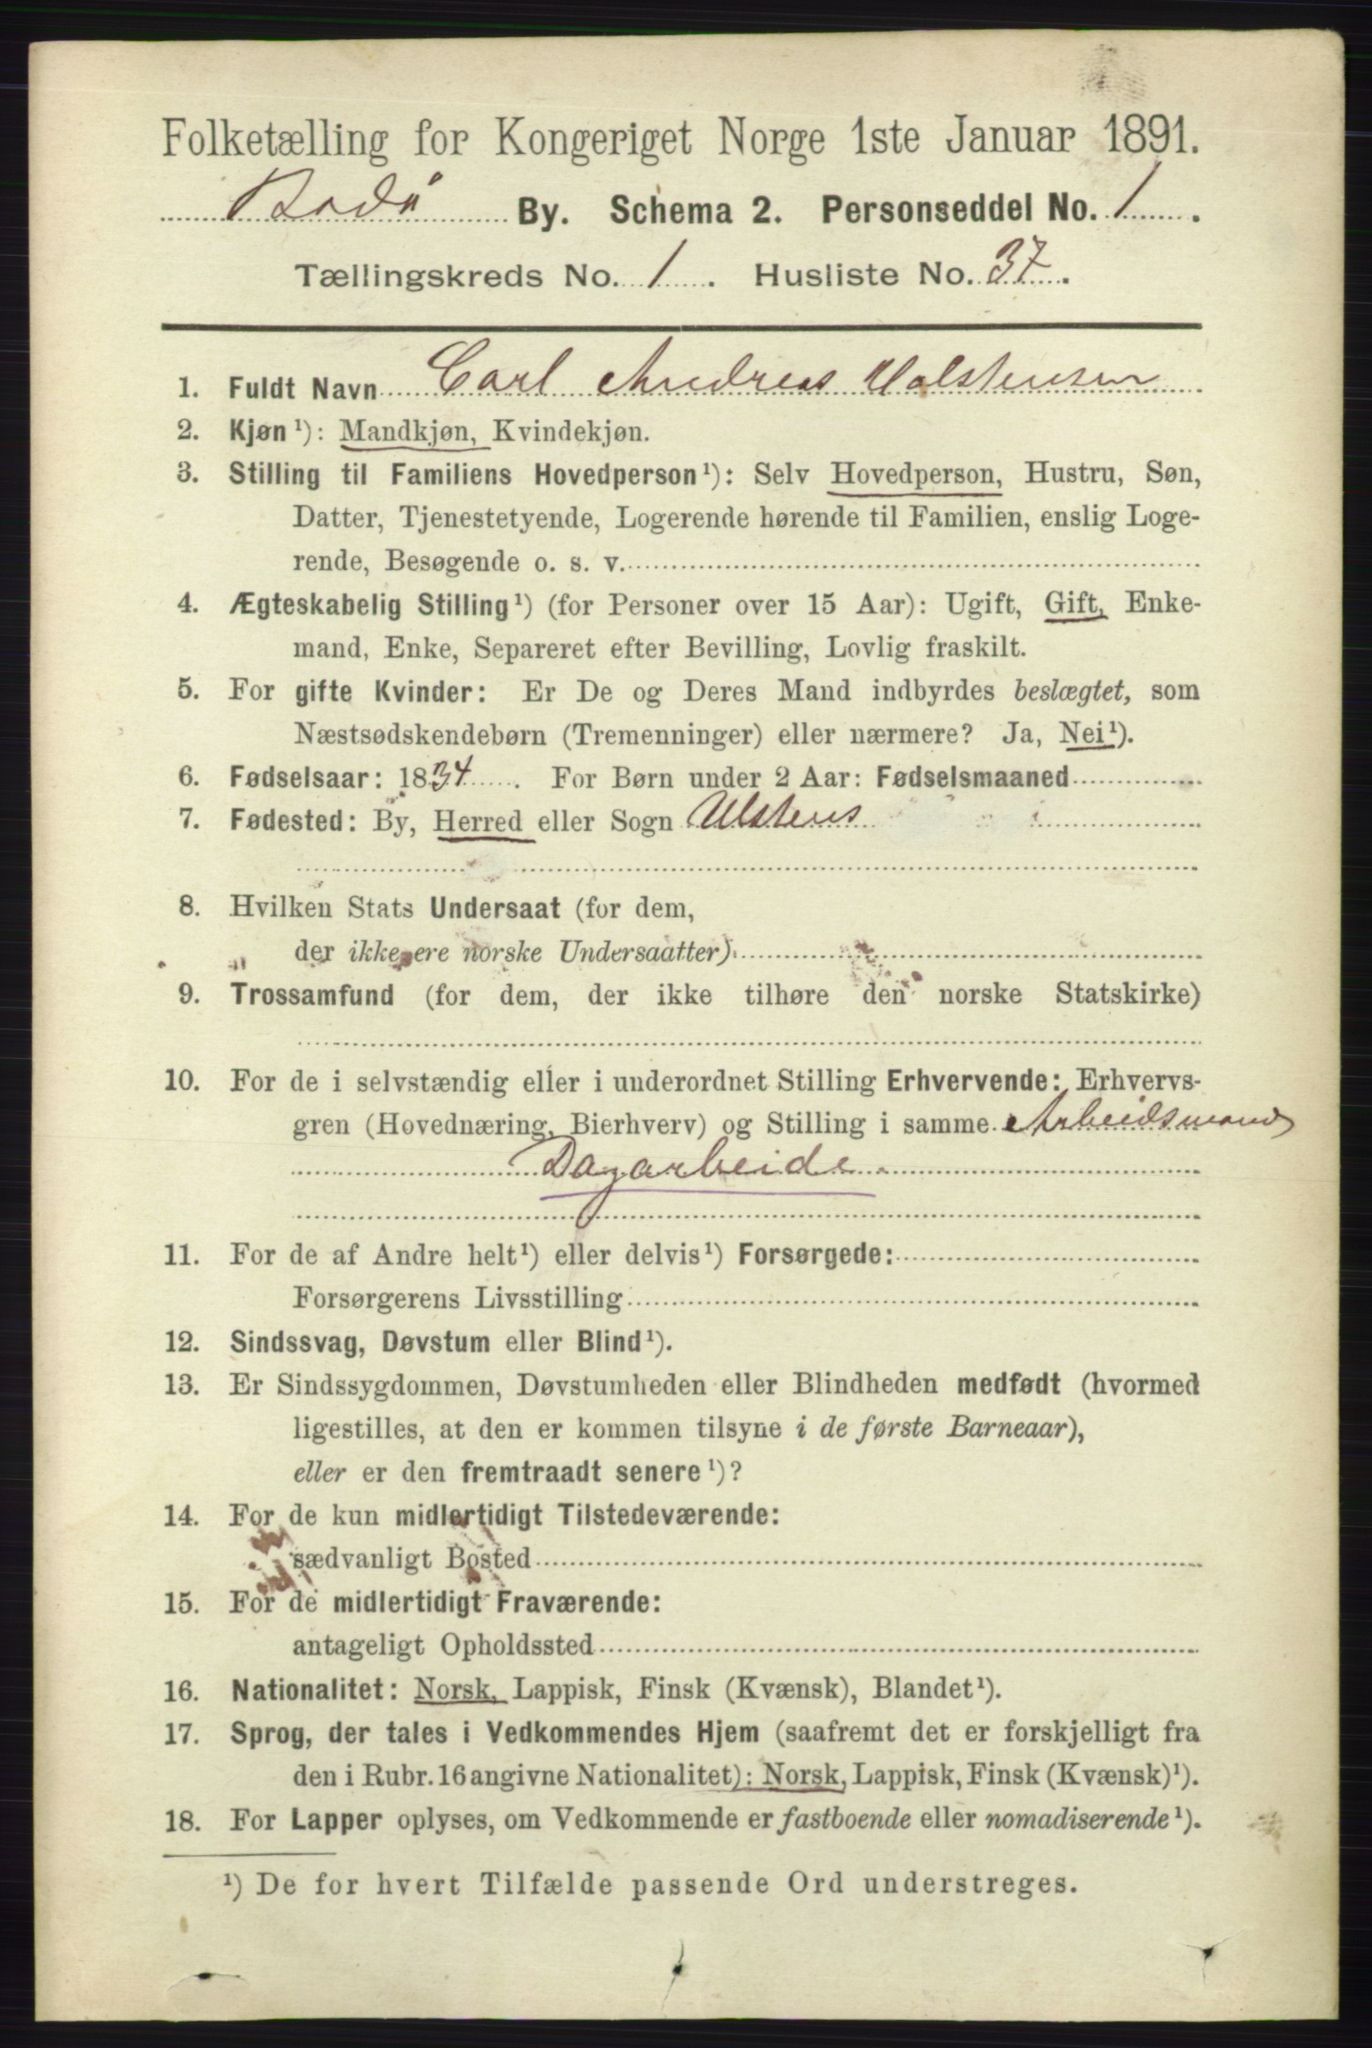 Folketælling for Kongeriget Norge 1ste Januar 1891.
Bodø By. Schema 2. Personseddel No. 1.
Tællingskreds No. 1. Husliste No. 37.
1. Fuldt Navn Carl Andreas Holstensen
2. Kjøn¹): Mandkjøn, Kvindekjøn.
3. Stilling til Familiens Hovedperson¹): Selv Hovedperson, Hustru, Søn,
Datter, Tjenestetyende, Logerende hørende til Familien, enslig Loge-
rende, Besøgende o. s. v.
4. Ægteskabelig Stilling¹) (for Personer over 15 Aar): Ugift, Gift, Enke-
mand, Enke, Separeret efter Bevilling, Lovlig fraskilt.
5. For gifte Kvinder: Er De og Deres Mand indbyrdes beslægtet, som
Næstsødskendebørn (Tremenninger) eller nærmere? Ja, Nei¹).
6. Fødselsaar: 1834. For Børn under 2 Aar: Fødselsmaaned
7. Fødested: By, Herred eller Sogn
8. Hvilken Stats Undersaat (for dem,
der ikke ere norske Undersaatter)
9. Trossamfund (for dem, der ikke tilhøre den norske Statskirke)
10. For de i selvstændig eller i underordnet Stilling Erhvervende: Erhvervs-
gren (Hovednæring, Bierhverv) og Stilling i samme Arbeidsmand
Dagarbeide.
11. For de af Andre helt¹) eller delvis¹) Forsørgede:
Forsørgerens Livsstilling
12. Sindssvag, Døvstum eller Blind¹).
13. Er Sindssygdommen, Døvstumheden eller Blindheden medfødt (hvormed
ligestilles, at den er kommen tilsyne i de første Barneaar),
eller er den fremtraadt senere¹)?
14. For de kun midlertidigt Tilstedeværende:
sædvanligt Bosted
15. For de midlertidigt Fraværende:
antageligt Opholdssted
16. Nationalitet: Norsk, Lappisk, Finsk (Kvænsk), Blandet¹).
17. Sprog, der tales i Vedkommendes Hjem (saafremt det er forskjelligt fra
den i Rubr. 16 angivne Nationalitet): Norsk, Lappisk, Finsk (Kvænsk)¹).
18. For Lapper oplyses, om Vedkommende er fastboende eller nomadiserende¹).
¹) De for hvert Tilfælde passende Ord understreges.